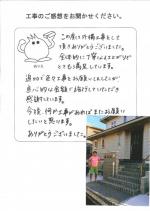 工事のご感想をお聞かせください。
この度は外構工事をして
頂きありがとうございました。
全体的に丁寧な仕上がりで
とても満足しています。
追加で色々工事をお願いしましたが
良心的な金額で施行していただき
感謝しています。
今後、何か工事があればまたお願い
したいと思います。
ありがとうございました。